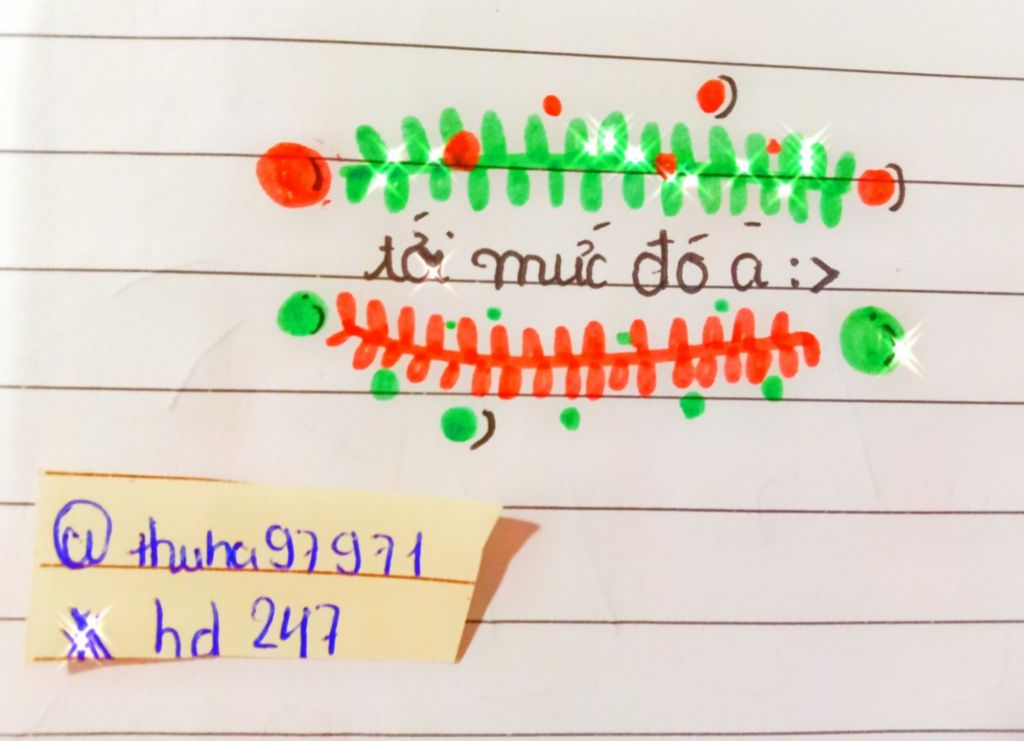 tới mức đó à :>
@thuha97971
hd 247